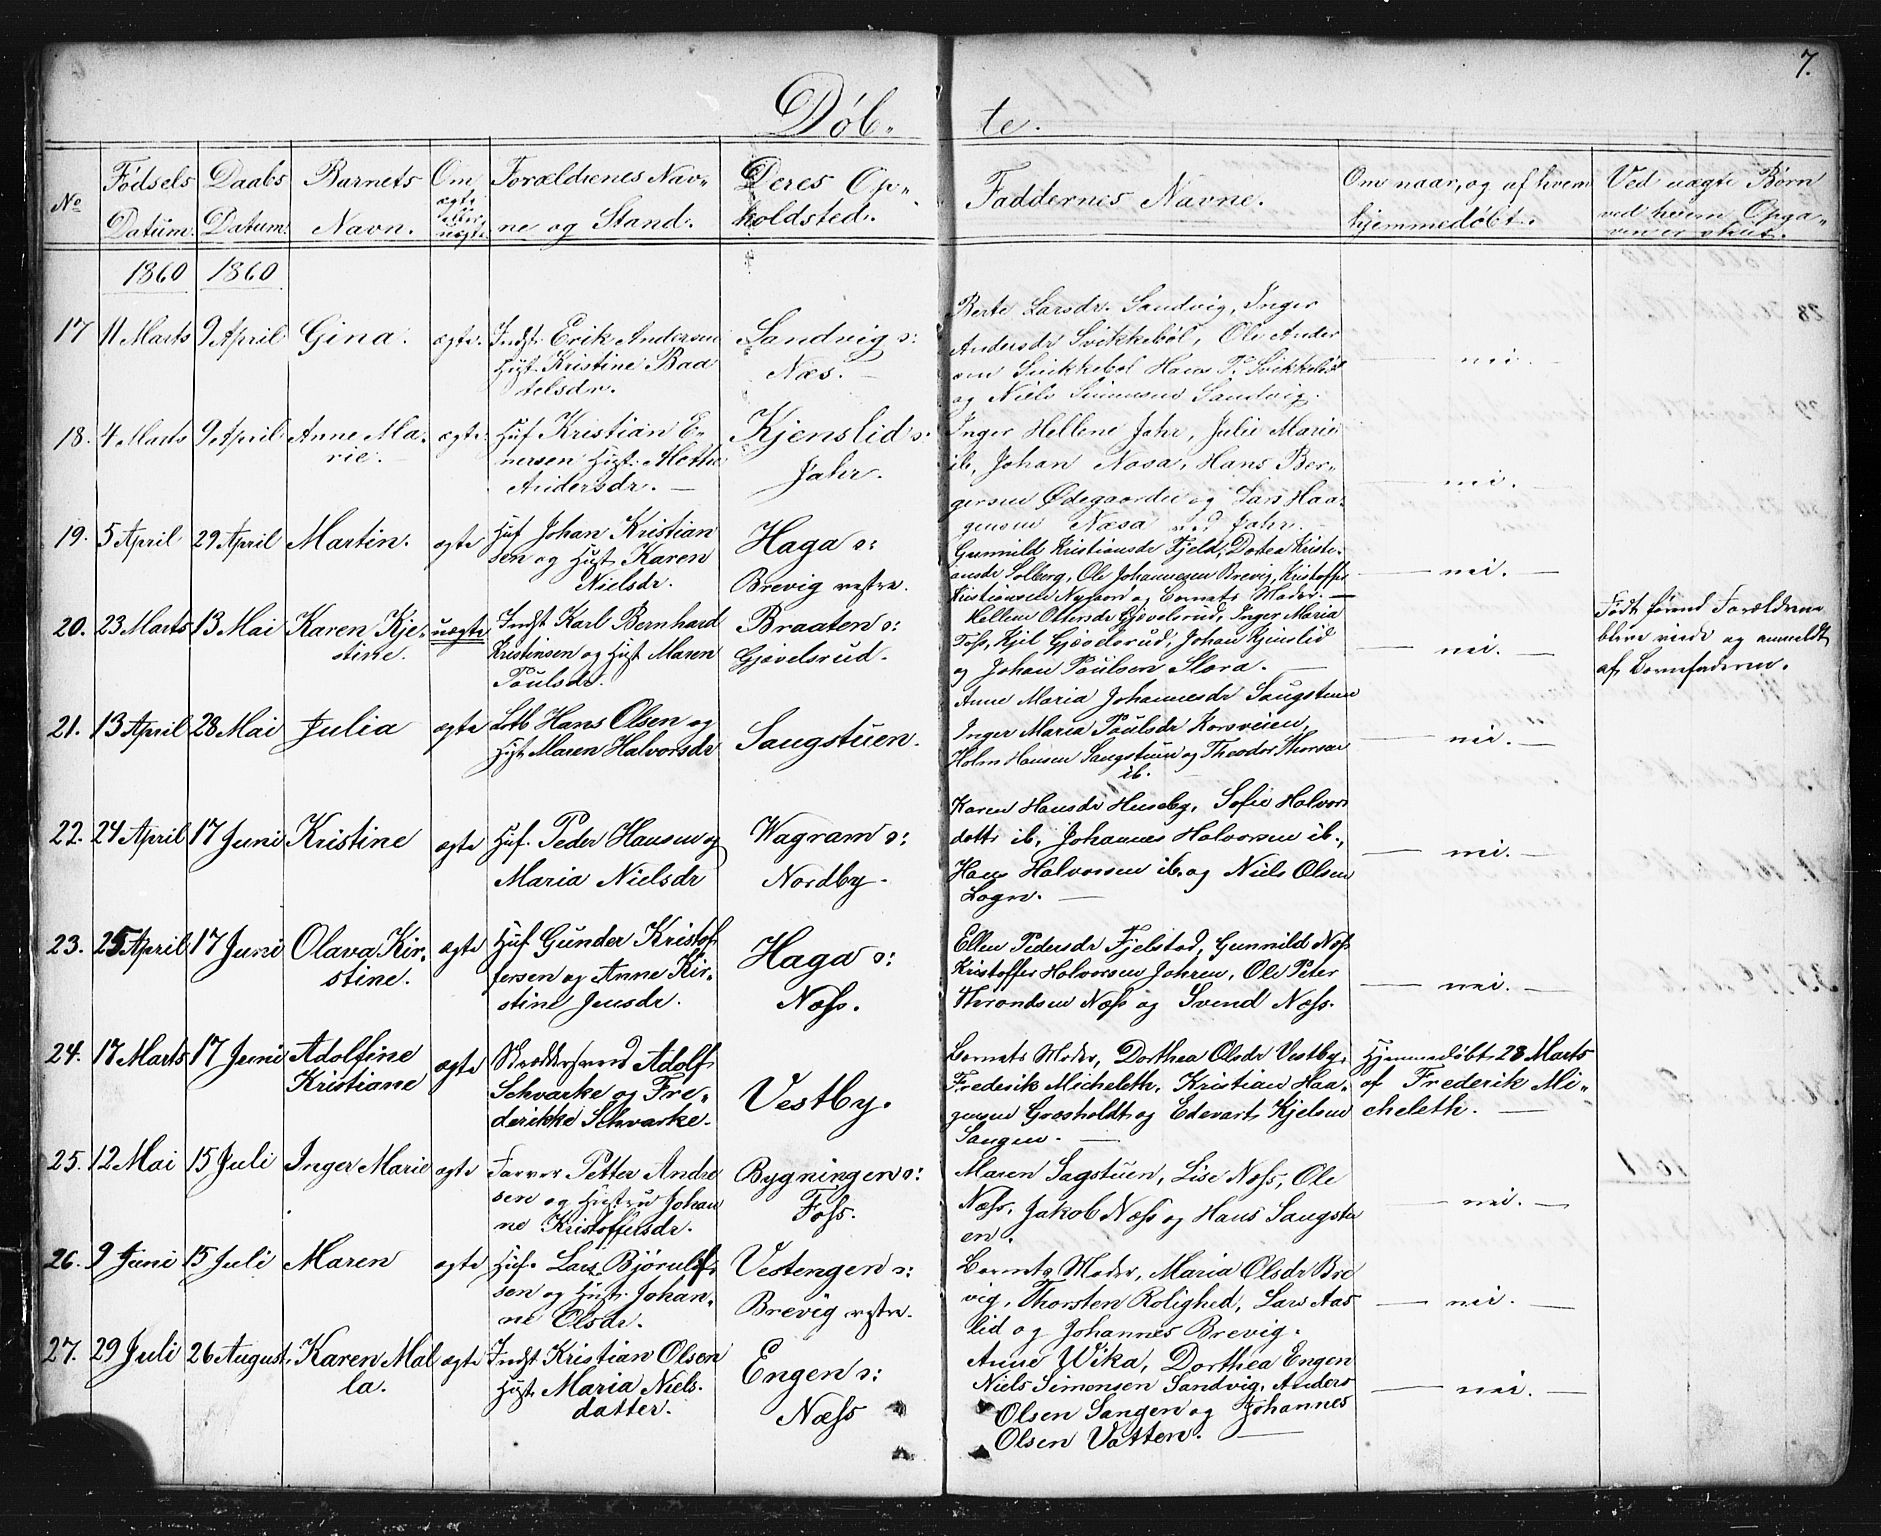 7.
Døb- te.
No
Fødsels Datum.
Daabs Datum.
Barnets Navn.
Om ægte eller uægte.
Forældrenes Navne og Stand.
Deres Opholdsted.
Faddernes Navne.
Om naar, og af hvem hjemmedøbt.
Ved uægte Børn ved hvem Opgaven er skeet.
1860 1860
17 11 Marts 9 April Gina. ægte. Indst. Erik Andersen Sandvig o:
Hust. Kristine Baa Næs.
telsdr.
Berte Larsdr. Sandvig, Inger
Andersdr Svikkebøl, Ole Ander
sen Svikkebøl Hans P. Svikkebøl
og Niels Simensen Sandvig.
— nei. —
18. 4 Marts 9 April Anne Ma- ægte. Huf Kristian E- Kjenslid o:
rie. — nersen Hust. Mette Jahr.
Andersdr. —
Inger Hellene Jahr, Julie Marie
ib, Johan Nasa, Hans Ber-
gersen Ødegaarden og Lars Haa-
gensen Næsa ved Jahr.
— nei. —
19. 5 April 29 April Martin. ægte Huf Johan Kristian Haga o:
sen og Hust. Karen Brevig vestre.
Nielsdr.
Gunnild Kristiansdr Fjeld, Dortea Kristi-
ansdr Solberg, Ole Johannesen Brevig, Kristoffer
Kristiansen Nygaard og Barnets Moder. —
— nei. —
20. 23 Marts 13 Mai Karen Kje- uægte Indst Karl Bernhard Braaten o:
stine. Kristinsen og Hust Maren Gjøvelsrud.
Poulsdr.
Hellene Ottersdr Gjøvelsrud, Inger Maria
Foss, Kjel Gjøvelsrud, Johan Kjenslid
og Johan Poulsen Slora. —
— nei. —
Født førend Forældrene
bleve viede og anmeldt
af Barnefaderen.
21. 13 April 28 Mai Julia ægte Hans Olsen og Saugstuen.
Hust. Maren Halvorsdr
Anne Maria Johannesdr Saugstuen
Inger Maria Poulsdr Korsveien,
Holm Hansen Saugstuen og Theodor
ib.
— nei. —
22. 24 April 17 Juni Kristine ægte Huf. Peder Hansen og Wagram o:
Maria Nielsdr Nordby.
Karen Hansdr Huseby, Sofie Halvors
datter ib, Johannes Halvorsen ib.,
Hans Halvorsen ib. og Niels Olsen
Logn. —
— nei. —
23. 25 April 17 Juni Olava Kir- ægte Huf Gunder Kristof Haga o:
stine. fersen og Anne Kir- Næss.
stine Jensdr.
Ellen Pedersdr Fjelstad, Gunnild Næss
Kristoffer Halvorsen Jahren, Ole Peter
Throndsen Næss og Svend Næss.
— nei. —
24. 17 Marts 17 Juni Adolfine ægte Skræddersvend Adolf Vestby.
Kristiane Schvarke og Fre-
derikke Schvarke.
Barnets Moder, Dorthea Olsdr Vestby,
Frederik Micheleth, Kristian Haa-
gensen Græsholdt og Edevart Kjelsen
Sangen. —
Hjemmedøbt 28 Marts
af Frederik Mi-
cheleth. —
25. 12 Mai 15 Juli Inger Marie ægte Farver Petter Andre Bygningen o:
sen og Hustru Johan Foss.
ne Kristoffelsdr.
Maren Sagstuen, Lise Næss, Ole
Næss, Jakob Næss og Hans Saugstu
en.
— nei. —
26. 9 Juni 15 Juli Maren ægte Huf. Lars Bjørnulf- Vestengen o:
sen og Hustr. Johan- Brevig vestre.
ne Olsdr.
Barnets Moder, Maria Olsdr Bre
vig, Thorsten Rolighed, Lars Aas
lid og Johannes Brevig.
— nei. —
27. 29 Juli 26 August. Karen Mal ægte Indst Kristian Olsen Engen o:
la. Hust. Maria Niels. Næss
datter.
Anne Wika, Dorthea Engen
Niels Simonsen Sandvig, Anders
Olsen Sangen og Johannes
Olsen Vatten. —
— nei. —